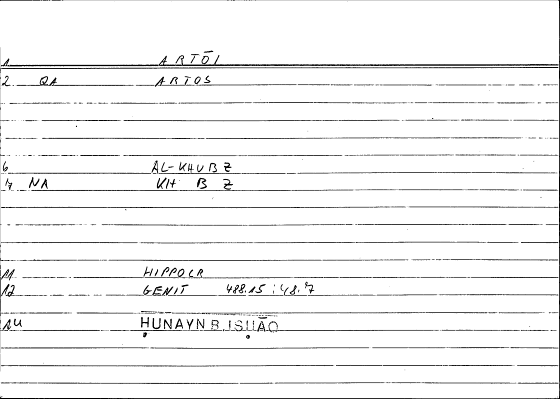 1 ARTŌI
2 QA ARTOS
6 AL-KHUBZ
7 NA KH B Z
11 HIPPOCR
12 GENIT 488.15 : 48.7
14 HUNAYN B. ISHĀQ